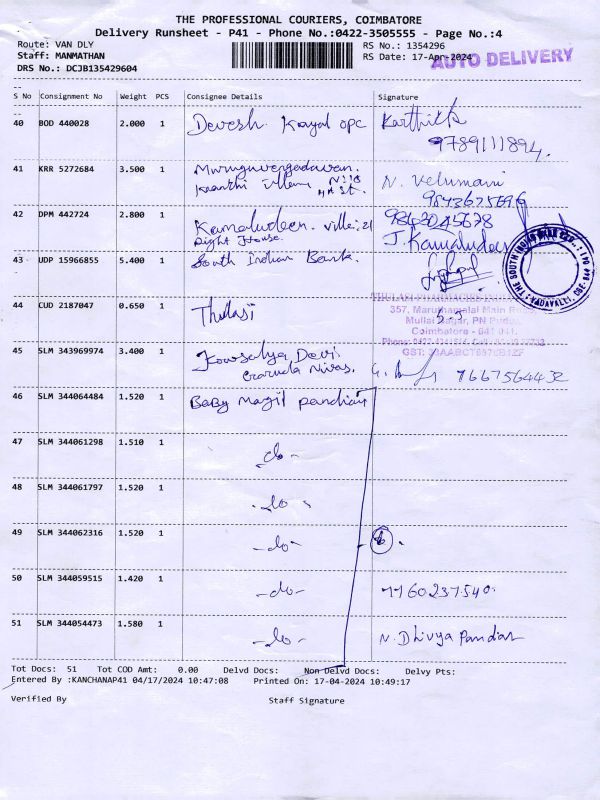 THE PROFESSIONAL COURIERS, COIMBATORE
Delivery Runsheet - P41 - Phone No.:0422-3505555 - Page No.:4
Route: VAN DLY
RS No.: 1354296
Staff: MANMATHAN
RS Date: 17-Apr-2024
AUTO DELIVERY
DRS No.: DCJB135429604
S No Consignment No Weight PCS Consignee Details Signature
40 BOD 440028 2.000 1 Devesh Kayal opc Karthik
9789111894.
41 KRR 5272684 3.500 1 Murugavengadavan. N. Velumani
42 DPM 442724 2.800 1 Kamaludeen. villa:21
Right House. J. Kamaludeen
43 UDP 15966855 5.400 1 South Indian Bank.
THE SOUTH INDIAN BANK LTD. VADAVALLI, CBE
44 CUD 2187047 0.650 1 Thulasi
357, Marudhamalai Main Road
Mullai Nagar, PN Pudur
Coimbatore - 641 041.
45 SLM 343969974 3.400 1 Kowsalya Devi
Garuda Nivas. 7667564432
46 SLM 344064484 1.520 1 BaBy Magil pandian
47 SLM 344061298 1.510 1 -do-
48 SLM 344061797 1.520 1 -do-
49 SLM 344062316 1.520 1 -do-
50 SLM 344059515 1.420 1 -do- 7760237540.
51 SLM 344054473 1.580 1 -do- N. Dhivya Pandian
Tot Docs: 51 Tot COD Amt: 0.00 Delvd Docs: Non Delvd Docs: Delvy Pts:
Entered By :KANCHANAP41 04/17/2024 10:47:08 Printed On: 17-04-2024 10:49:17
Verified By Staff Signature